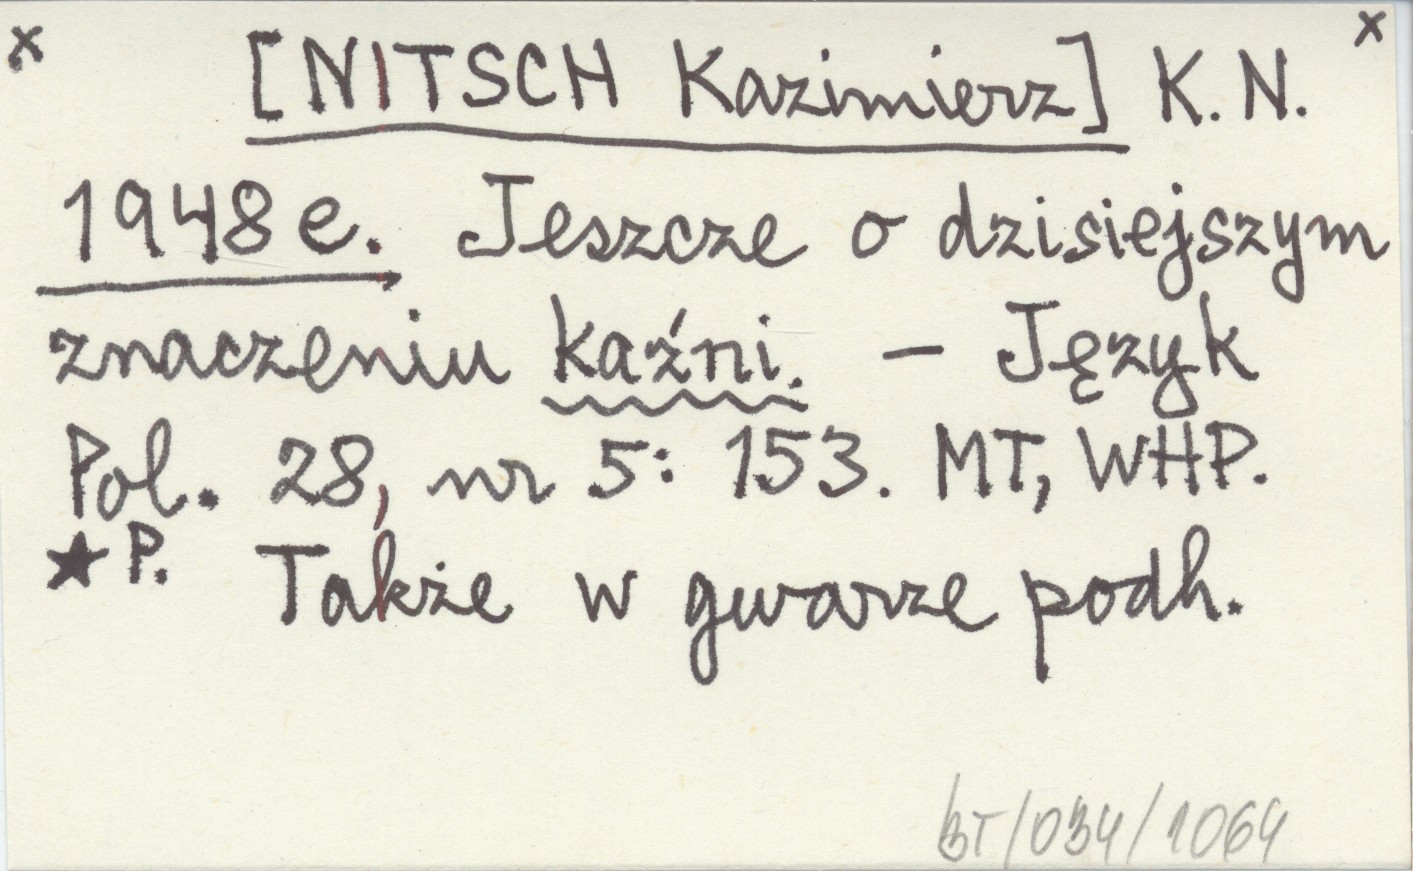 x [NITSCH Kazimierz] K. N. x
1948 e. Jeszcze o dzisiejszym
znaczeniu kaźni. – Język
Pol. 28, nr 5: 153. MT, WHP.
★ P. Także w gwarze podh.
BT/034/1064